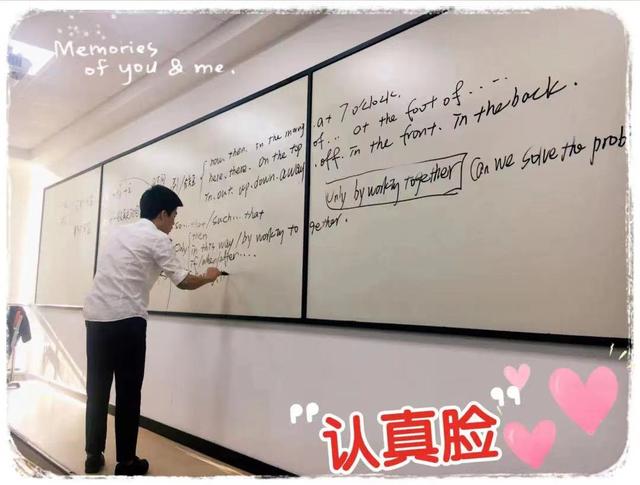 Memories
of you & me.
now. then. in the
here. there. on the top
in. out. up. down. away
at 7 o'clock.
of... at the foot of ......
off. in the front. in the back.
Only by working together can we solve the prob
so...that/such...that
Only
then
in this way/by working together.
if/when/after....
"认真脸"